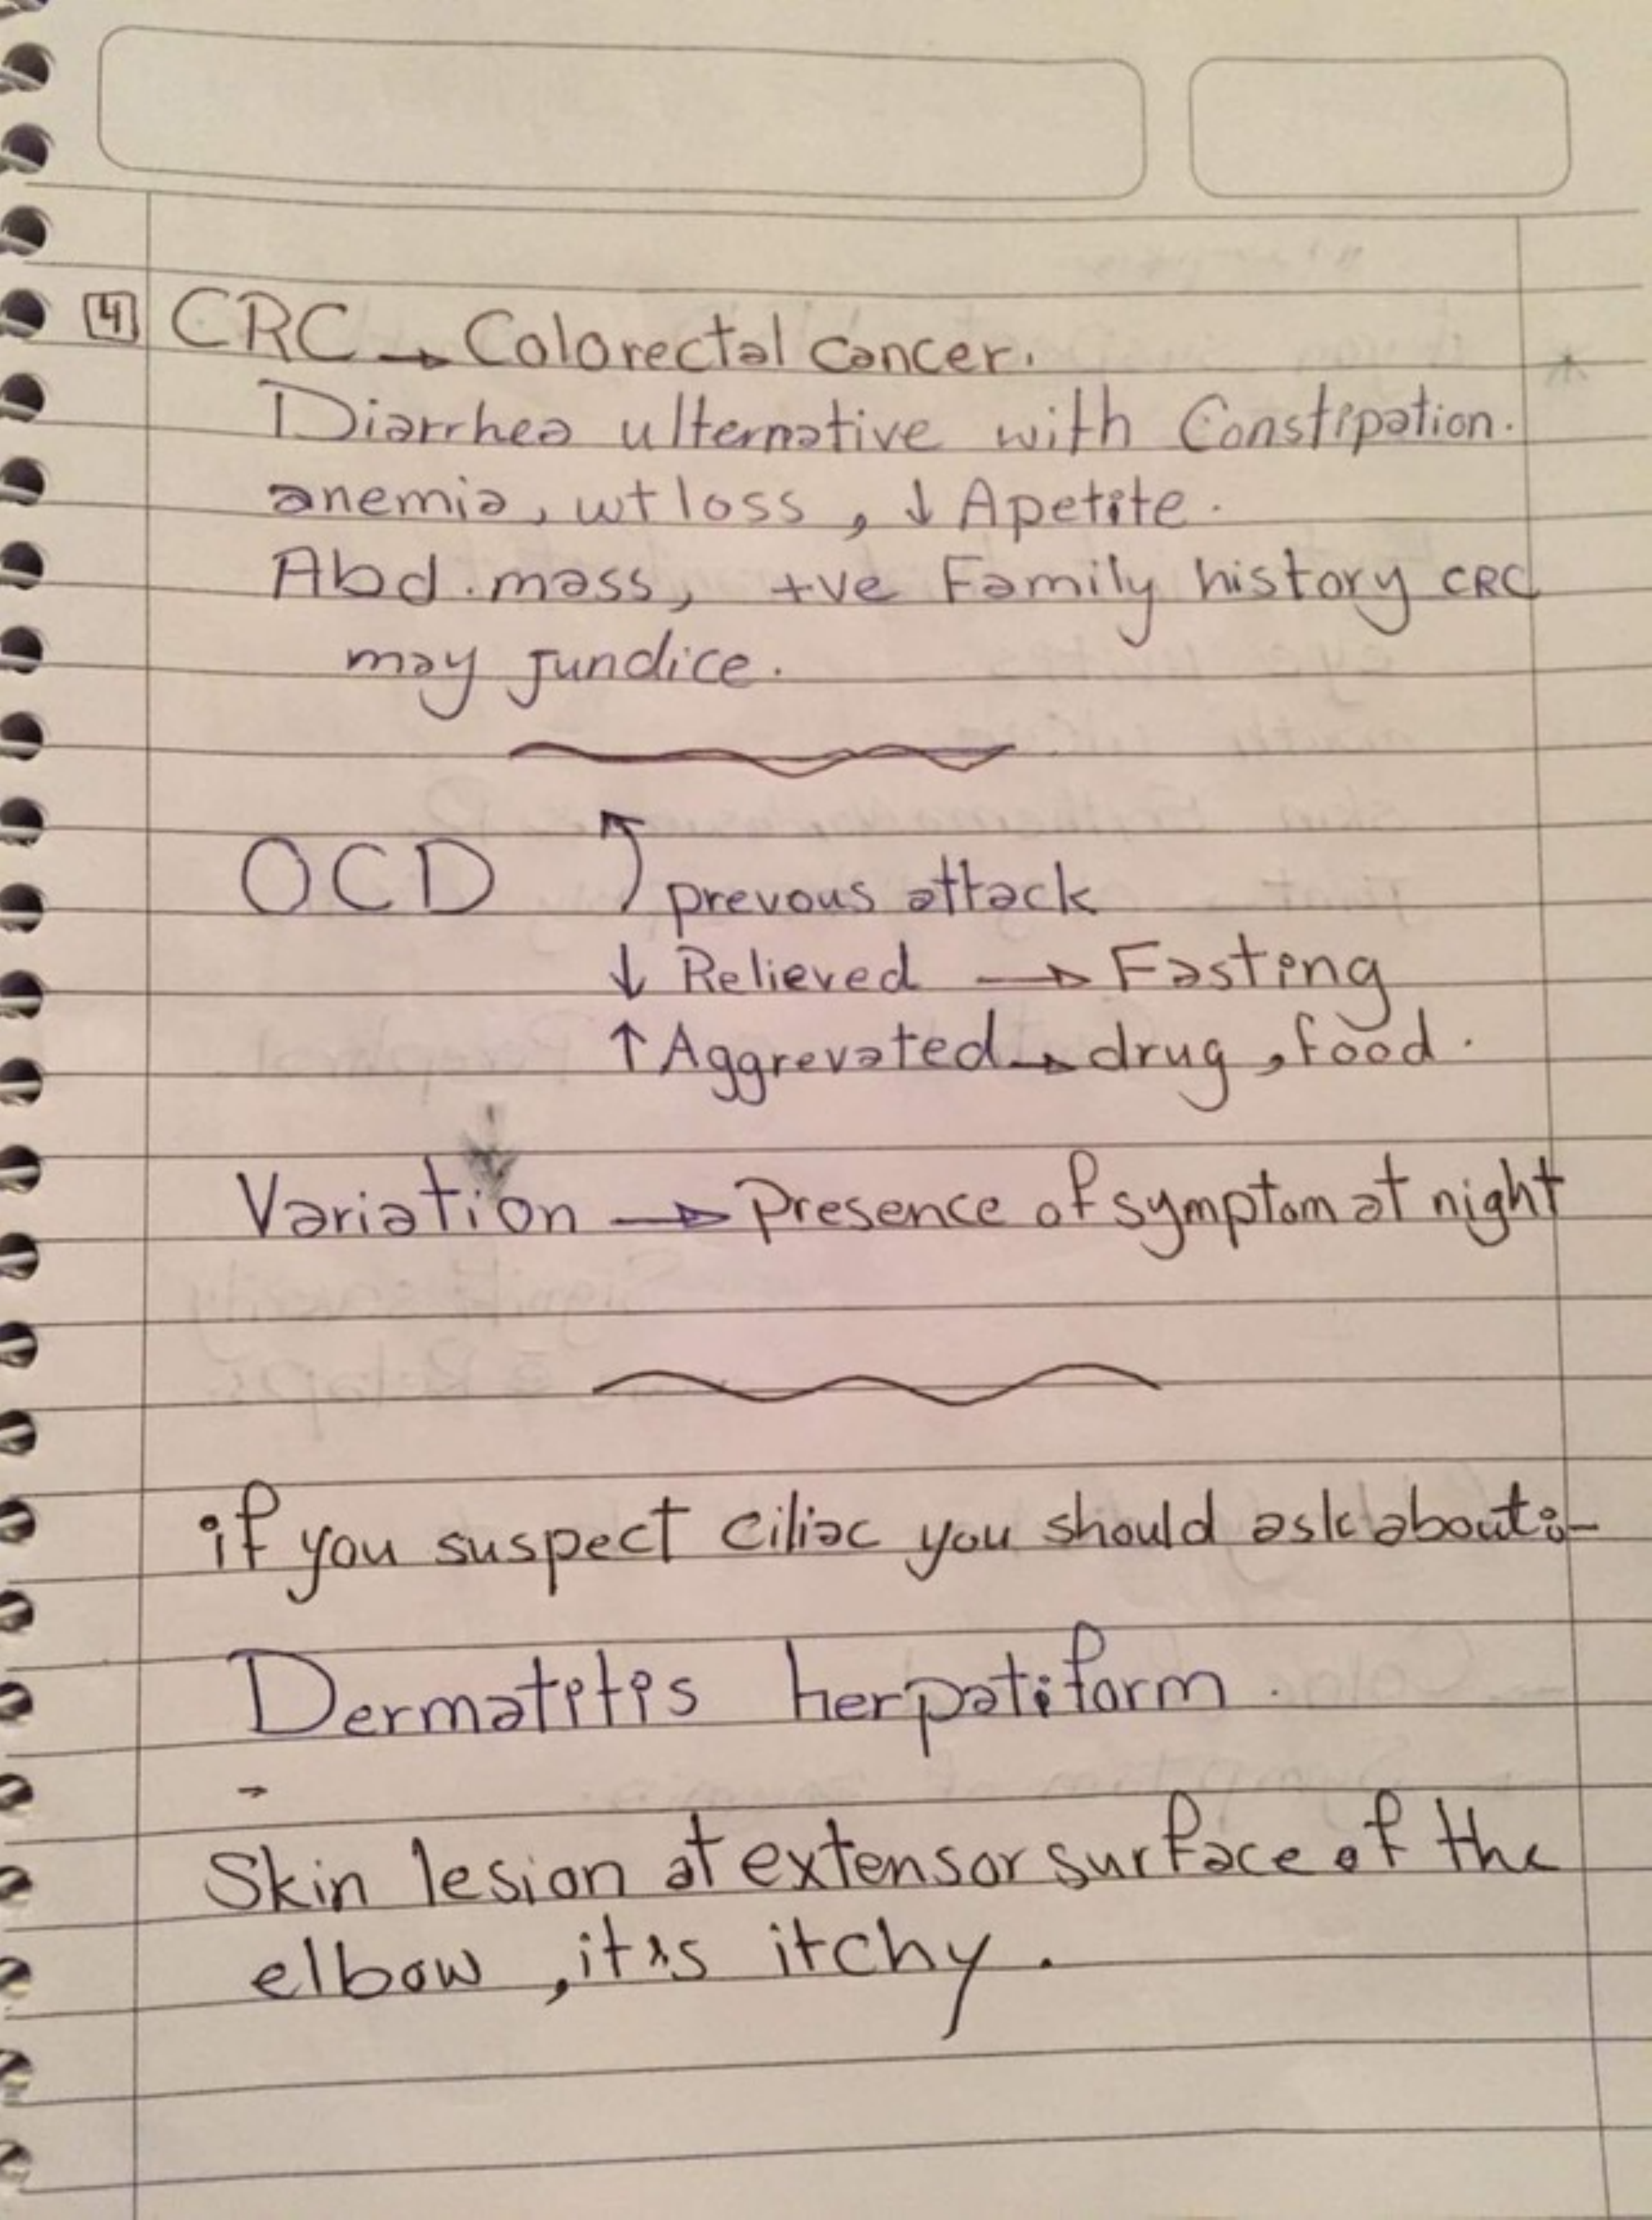 4 CRC → Colorectal cancer.
Diarrhea ulternative with Constipation.
anemia, wt loss, ↓ Apetite.
Abd. mass, +ve Family history CRC
may jundice.
OCD prevous attack
↓ Relieved → Fasting
↑ Aggrevated → drug, food.
Variation → Presence of symptom at night
if you suspect ciliac you should ask about:-
Dermatitis herpatiform.
-
Skin lesion at extensor surface of the
elbow, it's itchy.